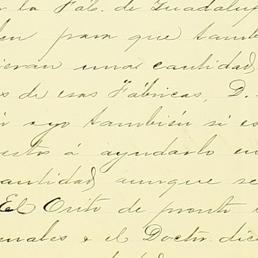 n la Fab. de Guadalup
en para que tambi
ieran una cantidad
s de esas Fábricas, D.
n yo también si es
estos á ayudarlo en
cantidad aunque se
El Orito de pronto
enales & el Doctor dice